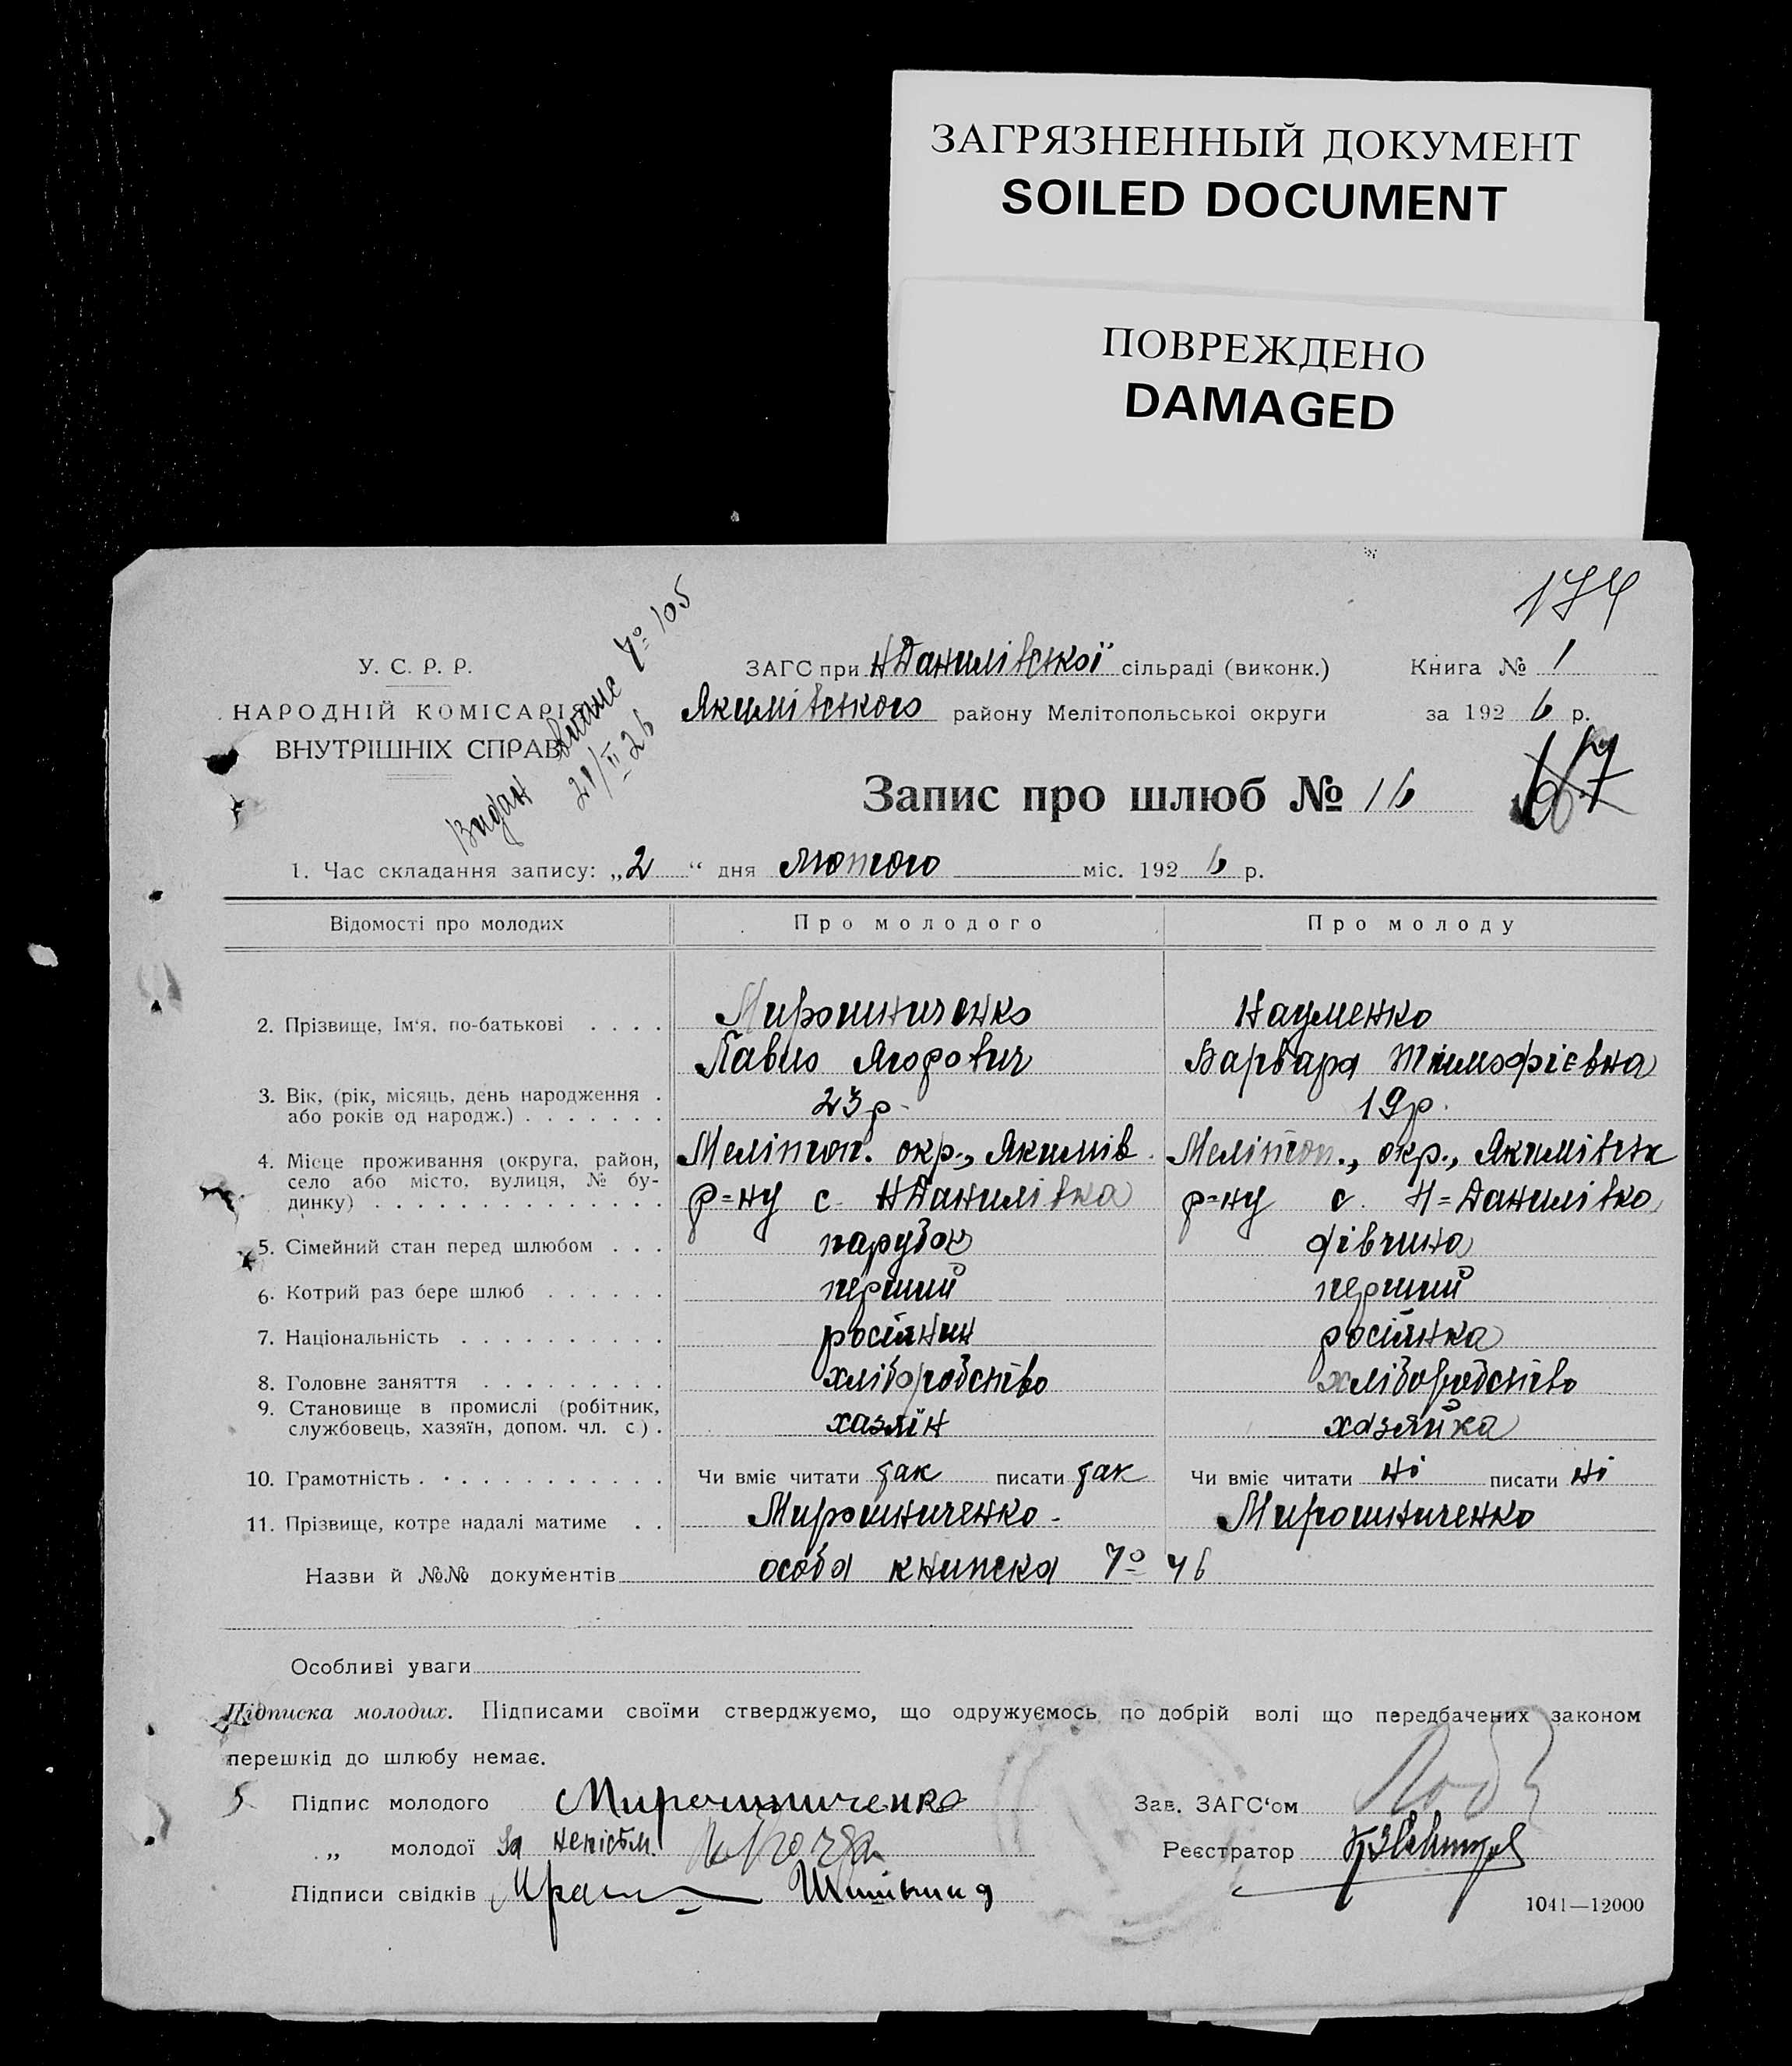 ЗАГРЯЗНЕННЫЙ ДОКУМЕНТ
SOILED DOCUMENT
ПОВРЕЖДЕНО
DAMAGED
174
У. С. Р. Р.
НАРОДНІЙ КОМІСАРІЯ
ВНУТРІШНІХ СПРАВ
Видан витяг № 105
21/II-26
ЗАГС при НДанилівської сільраді (виконк.)
Якимівського району Мелітопольскої округи
Книга № 1
за 1926 р.
Запис про шлюб № 16
67
1. Час складання запису: „2“ дня лютого міс. 1926 р.
Відомості про молодих
Про молодого
Про молоду
2. Прізвище, Ім‘я, по-батькові . . . .
Мирошниченко
Науменко
Павло Ягорович
Варвара Тимофієвна
3. Вік, (рік, місяць, день народження .
або років од народж.) . . . . . . .
23 р.
19 р.
4. Місце проживання (округа, район,
село або місто, вулиця, № бу-
динку) . . . . . . . . . . . . . .
Мелітоп. окр., Якимів.
р=ну с. НДанилівка
Мелітоп., окр., Якимівськ
р=ну с. Н=Данилівка
5. Сімейний стан перед шлюбом . . .
парубок
дівчина
6. Котрий раз бере шлюб . . . . . .
перший
перший
7. Національність . . . . . . . . . .
росіянин
росіянка
8. Головне заняття . . . . . . . . .
хліборобство
хліборобство
9. Становище в промислі (робітник,
службовець, хазяїн, допом. чл. с.) .
хазяїн
хазяйка
10. Грамотність . . . . . . . . . . . .
Чи вміє читати так писати так
Чи вміє читати ні писати ні
11. Прізвище, котре надалі матиме . .
Мирошниченко-
Мирошниченко
Назви й №№ документів особа книпска № 46
Особливі уваги
Підписка молодих. Підписами своїми стверджуємо, що одружуємось по добрій волі що передбачених законом
перешкід до шлюбу немає.
Підпис молодого Мирошниченко
Зав. ЗАГС‘ом
„ молодої За неписьм.
Реєстратор
Підписи свідків
1041—12000